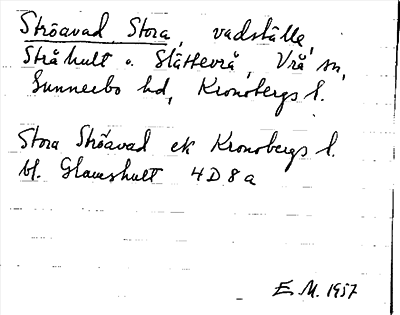 Ströavad Stora, vadställe,
Stråhult o. Slättevrå, Vrå sn,
Sunnerbo hd, Kronobergs l.
Stora Ströavad ek Kronobergs l.
bl. Glamshult 4D8a
E.M. 1957